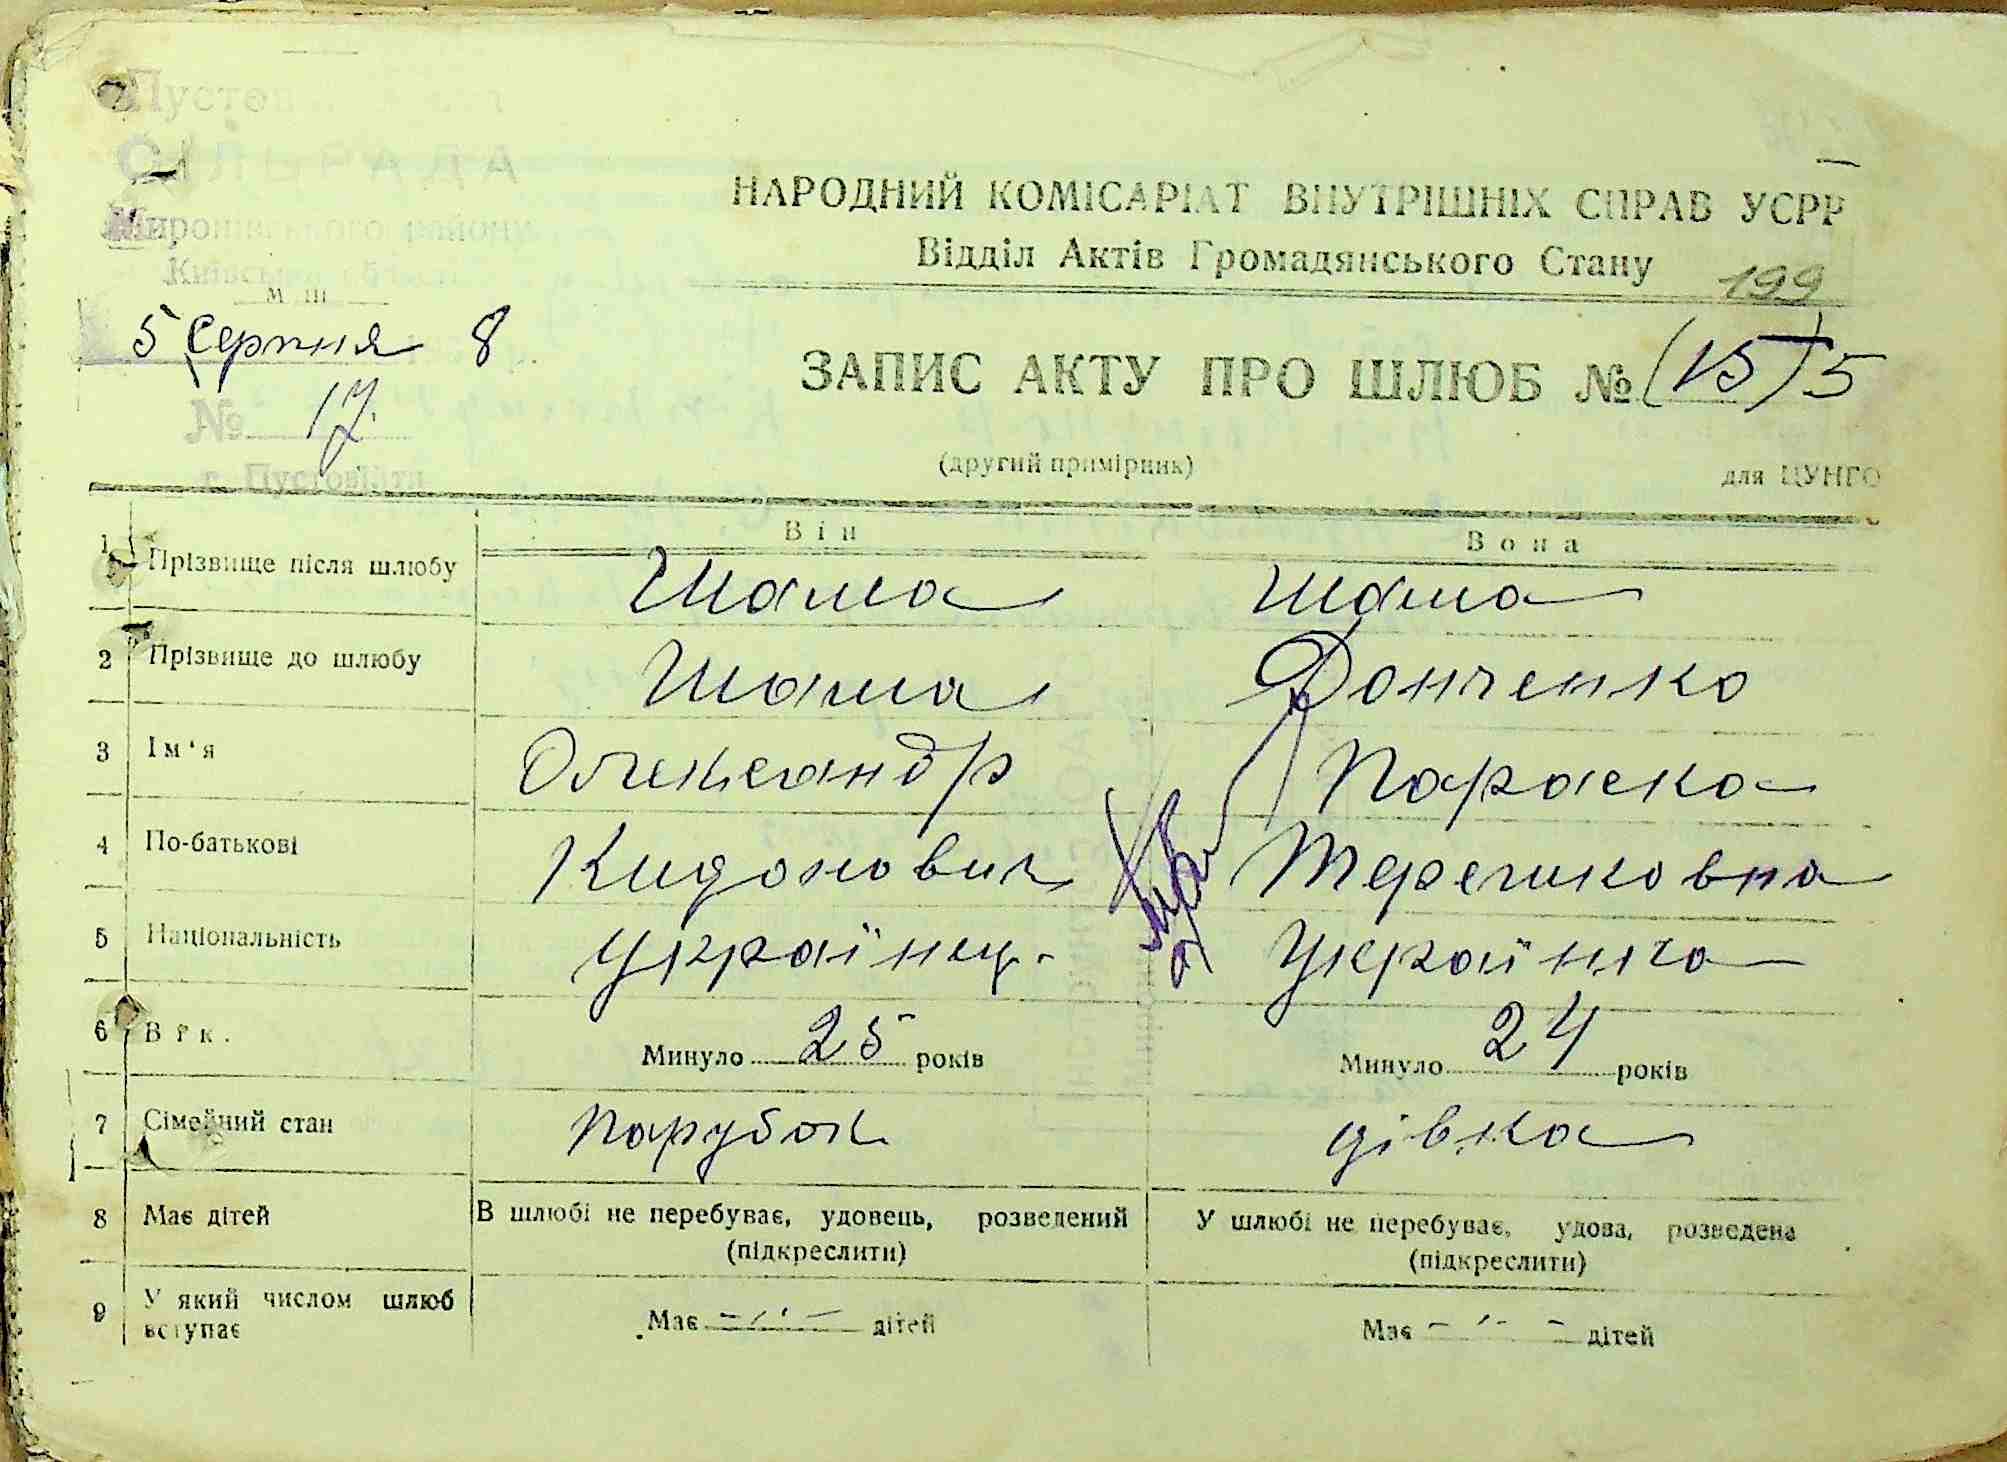 СІЛЬРАДА
Миронівського району
м ш
5 Серпня 8
№ 17.
НАРОДНИЙ КОМІСАРІАТ ВНУТРІШНІХ СПРАВ УСРР
Відділ Актів Громадянського Стану 199
ЗАПИС АКТУ ПРО ШЛЮБ № (15) 5
(другий примірник) для ЦУНГО
Він Вона
1 Прізвище після шлюбу Шама Шама
2 Прізвище до шлюбу Шама Донченко
3 Ім'я Олександр Параска
4 По-батькові Кидонович Терешковна
5 Національність Українець Українка
6 Вік. Минуло 25 років Минуло 24 років
7 Сімейний стан парубок дівка
8 Має дітей В шлюбі не перебуває, удовець, розведений У шлюбі не перебуває, удова, розведена
(підкреслити) (підкреслити)
9 У який числом шлюб
вступає Має - " - дітей Має - " - дітей